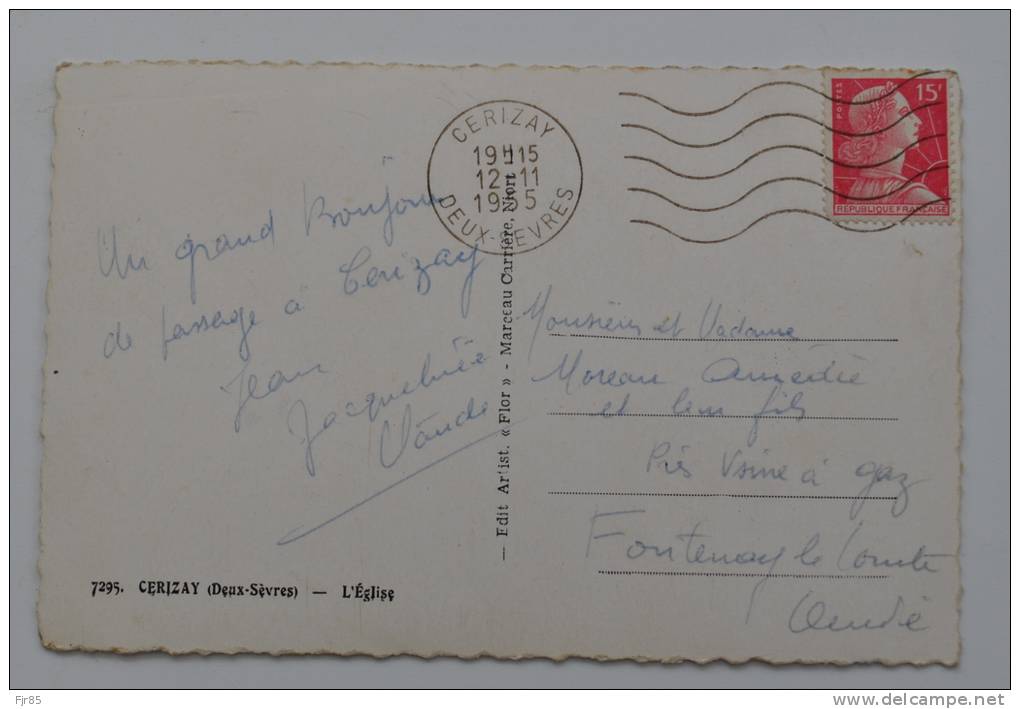 CERIZAY
19H15
12-11
1955
DEUX-SEVRES
POSTES
15F
REPUBLIQUE FRANÇAISE
Un grand Bonjour
de passage à Cerizay
Jean
Jacqueline
Claude
— Edit Artist. « Flor » - Marceau Carrière, Niort
Monsieur et Madame
Moreau Amédée
et leur fils
Près Usine à gaz
Fontenay le Comte
Vendée
7295. CERIZAY (Deux-Sèvres) — L'Église
Fjr85
www.delcampe.net